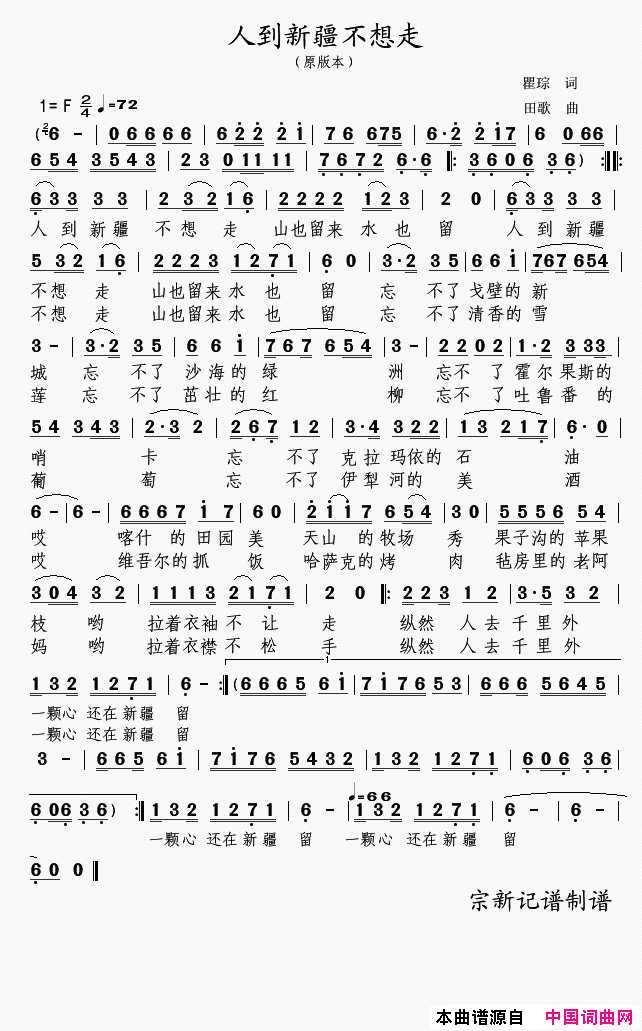 人到新疆不想走
(原版本)
瞿琮 词
1=F 2/4 ♩=72 田歌 曲
(2/4 6 – | 0 6 6 6 6 6 | 6 2 2 2 2 1 | 7 6 6 7 5 | 6· 2 2 1 7 | 6 0 6 6 |
6 5 4 3 5 4 3 | 2 3 0 1 1 1 1 | 7 6 7 2 6· 6 |: 3 6 0 6 3 6 ) :|
6 3 3 3 3 | 2 3 2 1 6 | 2 2 2 2 1 2 3 | 2 0 | 6 3 3 3 3 |
人到新疆 不想走 山也留来水也留 人到新疆
5 3 2 1 6 | 2 2 2 3 1 2 7 1 | 6 0 | 3· 2 3 5 | 6 6 1 | 7 6 7 6 5 4 |
不想走 山也留来水也留 忘不了戈壁的新
不想走 山也留来水也留 忘不了清香的雪
3 – | 3· 2 3 5 | 6 6 1 | 7 6 7 6 5 4 | 3 – | 2 2 0 2 | 1· 2 3 3 3 |
城 忘不了沙海的绿 洲 忘不了霍尔果斯的
莲 忘不了茁壮的红 柳 忘不了吐鲁番的
5 4 3 4 3 | 2· 3 2 | 2 6 7 1 2 | 3· 4 3 2 2 | 1 3 2 1 7 | 6· 0 |
哨卡 忘不了克拉玛依的石油
葡萄 忘不了伊犁河的美酒
6 – | 6 – | 6 6 6 7 1 7 | 6 0 | 2 1 1 7 6 5 4 | 3 0 | 5 5 5 6 5 4 |
哎 喀什的田园美 天山的牧场秀 果子沟的苹果
哎 维吾尔的抓饭 哈萨克的烤肉 毡房里的老阿
3 0 4 3 2 | 1 1 1 3 2 1 7 1 | 2 0 |: 2 2 3 1 2 | 3· 5 3 2 |
枝哟 拉着衣袖不让走 纵然人去千里外
妈哟 拉着衣襟不松手 纵然人去千里外
1
1 3 2 1 2 7 1 | 6 – :| (6 6 6 5 6 1 | 7 1 7 6 5 3 | 6 6 6 5 6 4 5 |
一颗心还在新疆留
一颗心还在新疆留
3 – | 6 6 5 6 1 | 7 1 7 6 5 4 3 2 | 1 3 2 1 2 7 1 | 6 0 6 3 6 |
♩=66
6 0 6 3 6 ) :| 1 3 2 1 2 7 1 | 6 – | 1 3 2 1 2 7 1 | 6 – | 6 – |
一颗心还在新疆留 一颗心还在新疆留
6 0 0 ‖
宗新记谱制谱
本曲谱源自 中国词曲网